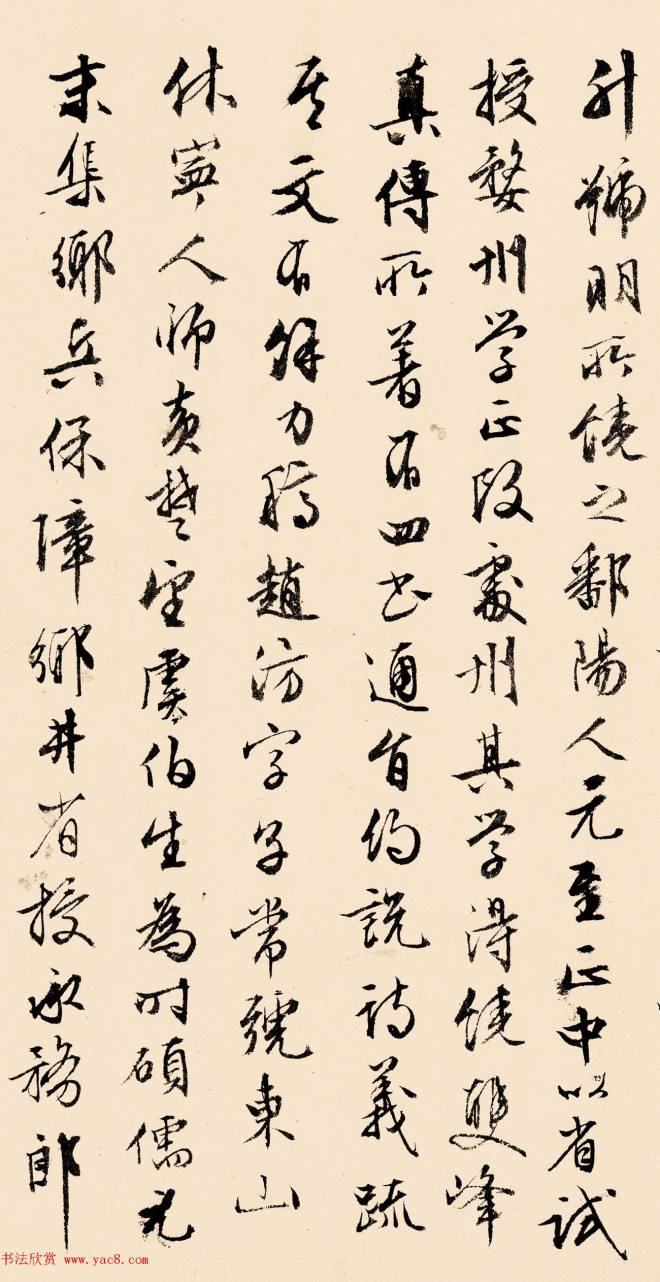 升號明所饒之鄱陽人元至正中以省試
授婺州学正改處州其学得饒雙峰
真傳所著有四書通旨約說詩義疏
其文有餘力稿趙汸字子常號東山
休寧人師黃楚望虞伯生為時碩儒元
末集鄉兵保障鄉井省授承務郎
书法欣赏 www.yac8.com